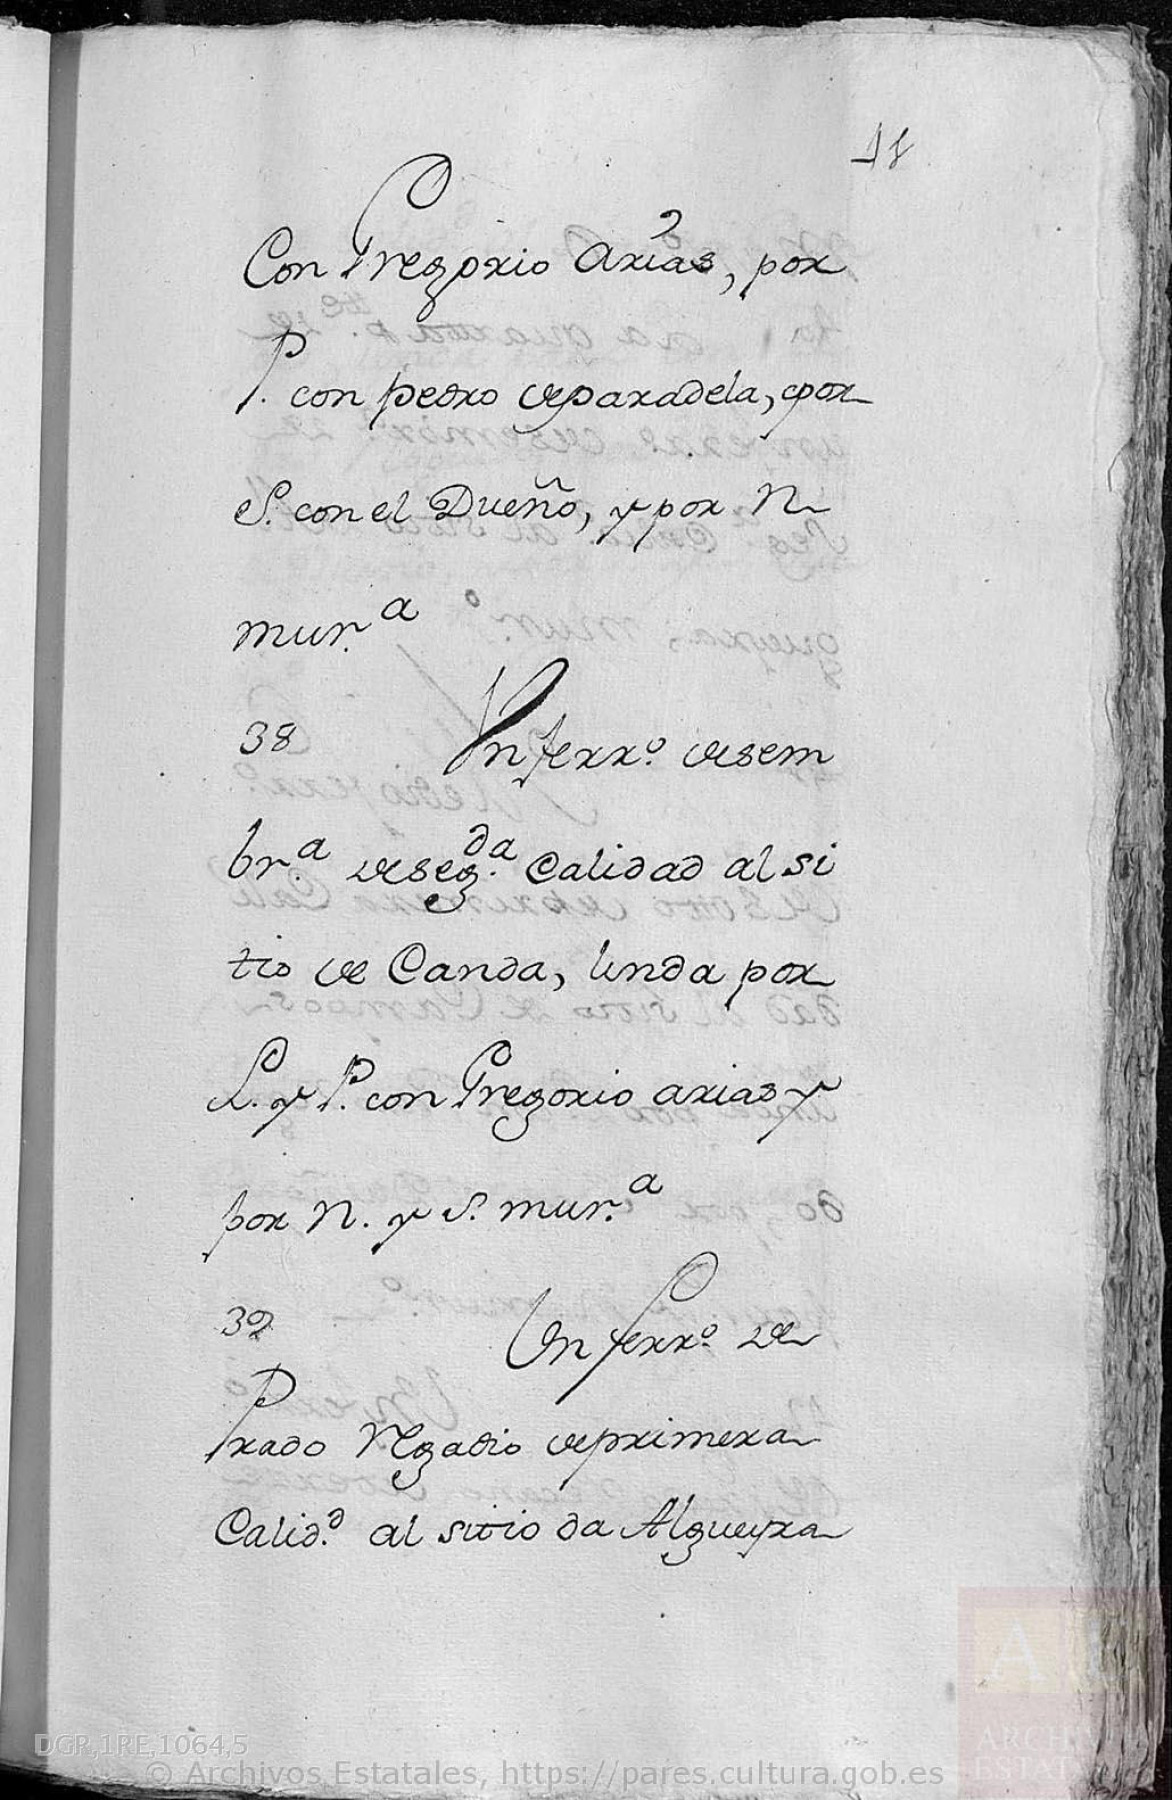 18
Con Gregorio Arias, por
P. con pedro deparadela, por
S. con el Dueño, y por N
mur.ª
38 Un ferr.º desem
br.ª deseg.da Calidad al si
tio de Canda, linda por
L. y P. con Gregorio arias y
por N. y S. mur.ª
39 Un ferr.º de
Prado Regadio deprimera
Calid.d al sitio da Algueyra
DGR,1RE,1064,5
© Archivos Estatales, https://pares.cultura.gob.es